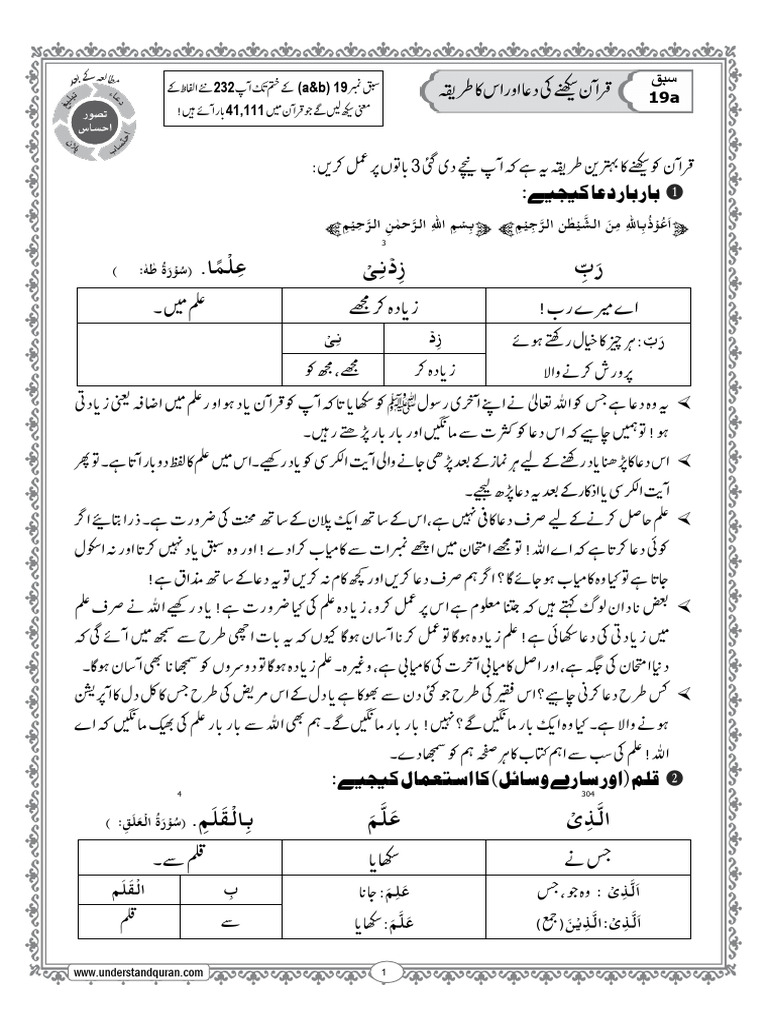 مطالعہ کے بعد
دعاء
تبلیغ
تصور
احساس
احتساب
پلان
سبق نمبر 19 (a&b) کے ختم تک آپ 232 نئے الفاظ کے
معنی سیکھ لیں گے جو قرآن میں 41,111 بار آئے ہیں!
سبق
19a
قرآن سیکھنے کی دعا اور اس کا طریقہ
قرآن کو سیکھنے کا بہترین طریقہ یہ ہے کہ آپ نیچے دی گئی 3 باتوں پر عمل کریں:
❶ بار بار دعا کیجیے:
اَعُوْذُ بِاللّٰهِ مِنَ الشَّيْطٰنِ الرَّجِيْمِ بِسْمِ اللّٰهِ الرَّحْمٰنِ الرَّحِيْمِ
3
رَبِّ زِدْنِيْ عِلْمًا. (سُوْرَةُ طٰهٰ: )
اے میرے رب! زیادہ کر مجھے علم میں۔
رَبّ: ہر چیز کا خیال رکھتے ہوئے زِدْ نِيْ
پرورش کرنے والا زیادہ کر مجھے، مجھ کو
یہ وہ دعا ہے جس کو اللہ تعالیٰ نے اپنے آخری رسول ﷺ کو سکھایا تاکہ آپ کو قرآن یاد ہو اور علم میں اضافہ یعنی زیادتی
ہو! تو ہمیں چاہیے کہ اس دعا کو کثرت سے مانگیں اور بار بار پڑھتے رہیں۔
اس دعا کا پڑھنا یاد رکھنے کے لیے ہر نماز کے بعد پڑھی جانے والی آیت الکرسی کو یاد رکھیے۔ اس میں علم کا لفظ دو بار آتا ہے۔ تو پھر
آیت الکرسی یا اذکار کے بعد یہ دعا پڑھ لیجیے۔
علم حاصل کرنے کے لیے صرف دعا کافی نہیں ہے، اس کے ساتھ ایک پلان کے ساتھ محنت کی ضرورت ہے۔ ذرا بتائیے اگر
کوئی دعا کرتا ہے کہ اے اللہ! تو مجھے امتحان میں اچھے نمبرات سے کامیاب کرا دے! اور وہ سبق یاد نہیں کرتا اور نہ اسکول
جاتا ہے تو کیا وہ کامیاب ہو جائے گا؟ اگر ہم صرف دعا کریں اور کچھ کام نہ کریں تو یہ دعا کے ساتھ مذاق ہے!
بعض نادان لوگ کہتے ہیں کہ جتنا معلوم ہے اس پر عمل کرو، زیادہ علم کی کیا ضرورت ہے! یاد رکھیے اللہ نے صرف علم
میں زیادتی کی دعا سکھائی ہے! علم زیادہ ہوگا تو عمل کرنا آسان ہوگا کیوں کہ یہ بات اچھی طرح سے سمجھ میں آئے گی کہ
دنیا امتحان کی جگہ ہے، اور اصل کامیابی آخرت کی کامیابی ہے، وغیرہ۔ علم زیادہ ہوگا تو دوسروں کو سمجھانا بھی آسان ہوگا۔
کس طرح دعا کرنی چاہیے؟ اس فقیر کی طرح جو کئی دن سے بھوکا ہے یا دل کے اس مریض کی طرح جس کا کل دل کا آپریشن
ہونے والا ہے۔ کیا وہ ایک بار مانگیں گے؟ نہیں! بار بار مانگیں گے۔ ہم بھی اللہ سے بار بار علم کی بھیک مانگیں کہ اے
اللہ! علم کی سب سے اہم کتاب کا ہر صفحہ ہم کو سمجھا دے۔
❷ قلم (اور سارے وسائل) کا استعمال کیجیے:
304 4
الَّذِيْ عَلَّمَ بِالْقَلَمِ. (سُوْرَةُ الْعَلَق: )
جس نے سکھایا قلم سے۔
اَلَّذِيْ : وہ جو، جس عَلِمَ: جانا بِ الْقَلَم
اَلَّذِيْ: الَّذِيْنَ (جمع) عَلَّمَ: سکھایا سے قلم
www.understandquran.com
1